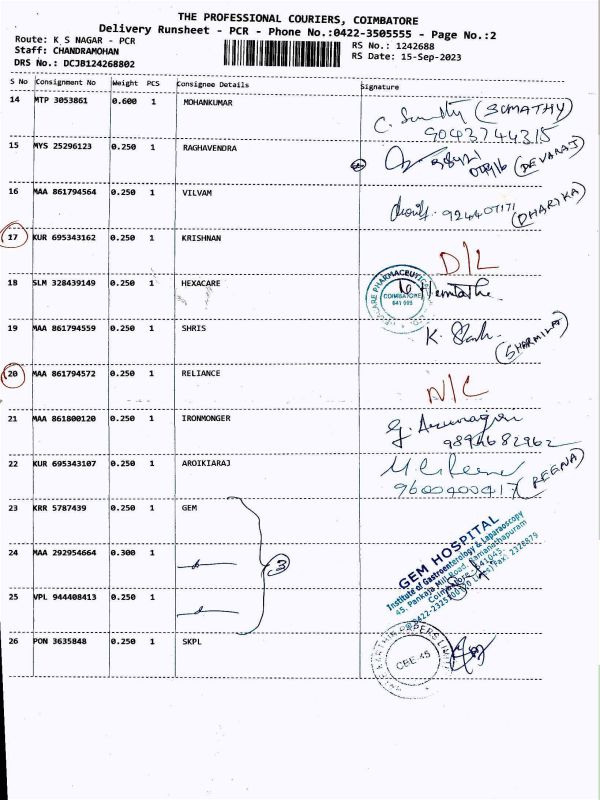 THE PROFESSIONAL COURIERS, COIMBATORE
Delivery Runsheet - PCR - Phone No.:0422-3505555 - Page No.:2
Route: K S NAGAR - PCR
RS No.: 1242688
Staff: CHANDRAMOHAN
RS Date: 15-Sep-2023
DRS No.: DCJB124268802
S No Consignment No Weight PCS Consignee Details Signature
14 MTP 3053861 0.600 1 MOHANKUMAR (SUMATHY)
9043744315
15 MYS 25296123 0.250 1 RAGHAVENDRA (DEVARAJ)
16 MAA 861794564 0.250 1 VILVAM (DHARIKA)
17 KUR 695343162 0.250 1 KRISHNAN D/L
18 SLM 328439149 0.250 1 HEXACARE
COIMBATORE
19 MAA 861794559 0.250 1 SHRIS K.
(SHARMILA)
20 MAA 861794572 0.250 1 RELIANCE N/C
21 MAA 861800120 0.250 1 IRONMONGER
9894682962
22 KUR 695343107 0.250 1 AROIKIARAJ
9600400417 (REENA)
23 KRR 5787439 0.250 1 GEM
24 MAA 292954664 0.300 1 3
25 VPL 944408413 0.250 1
GEM HOSPITAL
Institute of Gastroenterology & Laparaoscopy
45, Pankaja Mill Road, Ramanathapuram
26 PON 3635848 0.250 1 SKPL
CBE 45